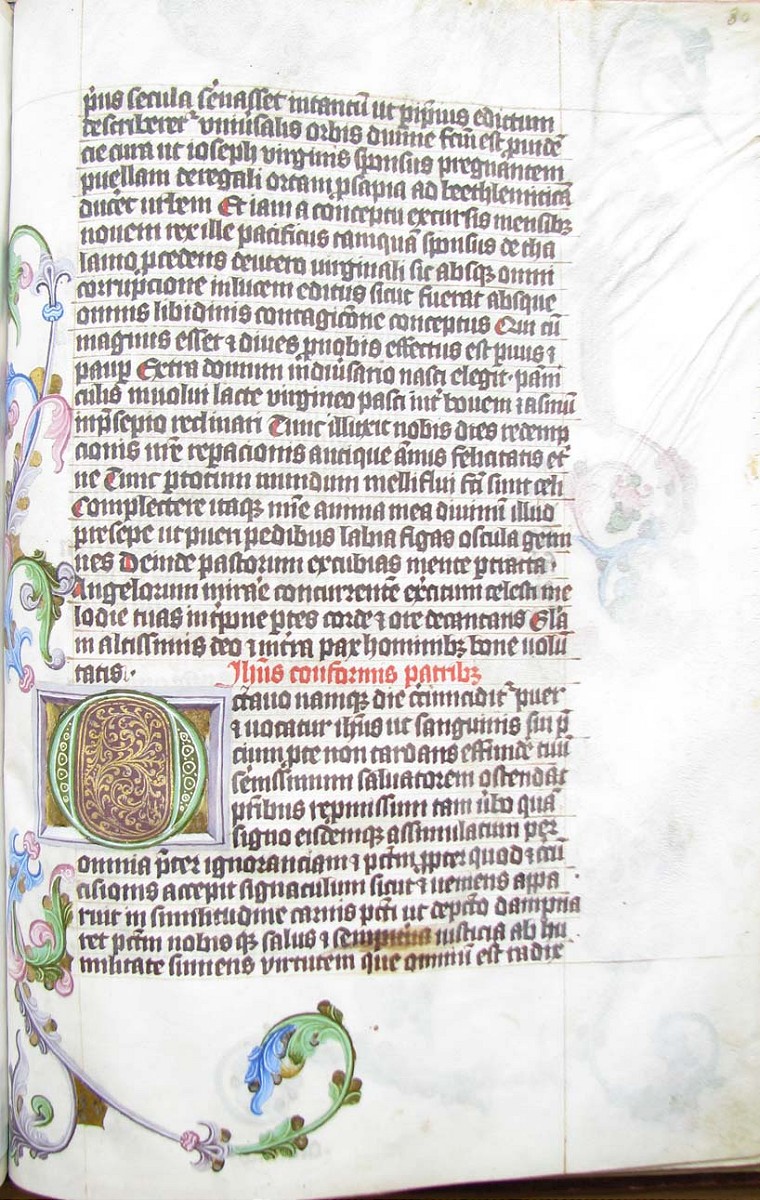 80
pius secula seruasset intantū ut pipius edictum
describeret᷑ vniūsalis orbis diuine fcm̄ est puide
cie cura ut ioseph virginis sponsus pregnantem
puellam de regali ortam psapia ad beethlemiticā
ducēt urbem Et iam a conceptu excursis mensibꝫ
nouem rex ille pacificus tamquā sponsus de tha
lamo pcedens deutero virginali sic absqꝫ omni
corrupcione in lucem editus sicut fuerat absque
omnis libidinis contagione conceptus Qui cū
magnus esset ⁊ diues pnobis effectus est pauus ⁊
paup Extra domum in diūsario nasci elegit pani
culis inuolui lacte virgineo pasci int̄ bouem ⁊ asinū
in psepio reclinari Tunc illuxit nobis dies redemp
cionis nr̄e repacionis antique āmis felicitatis et̄
ne Tunc ptotum mundum melliflui fc̄i sunt celi
Complectere itaqꝫ nūc anima mea diuinū illud
presepe ut pueri pedibus labia figas oscula gemi
nes Deinde pastorum excubias mente ptracta
Angelorum mirare concurrentē exercitum celesti me
lodie tuas int̄pone ptes corde ⁊ ore decantans Glā
in altissimis deo ⁊ in terra pax hominibꝫ bone uolū
tatis
Ihūs conformis patribꝫ
Octauo namqꝫ die circūcidit᷑ puer
⁊ uocatur ihūs ut sanguinis sui p̄
cium pte non tardans effunde tuū
se uerissimum saluatorem ostendāt
pr̄ibus repmissum tam ūbo quā
signo eisdemqꝫ assimulatum per
omnia pt̄er ignoranciam ⁊ pctm̄ ppter quod ⁊ cicū
cisionis accepit signaculum sicut ⁊ ueniens appa
ruit in similitudine carnis pcti ut depcto dampna
ret pctm̄ nobis qꝫ salus ⁊ sempiterna iusticia ab hu
militate sumens virtutem que omniū est radix